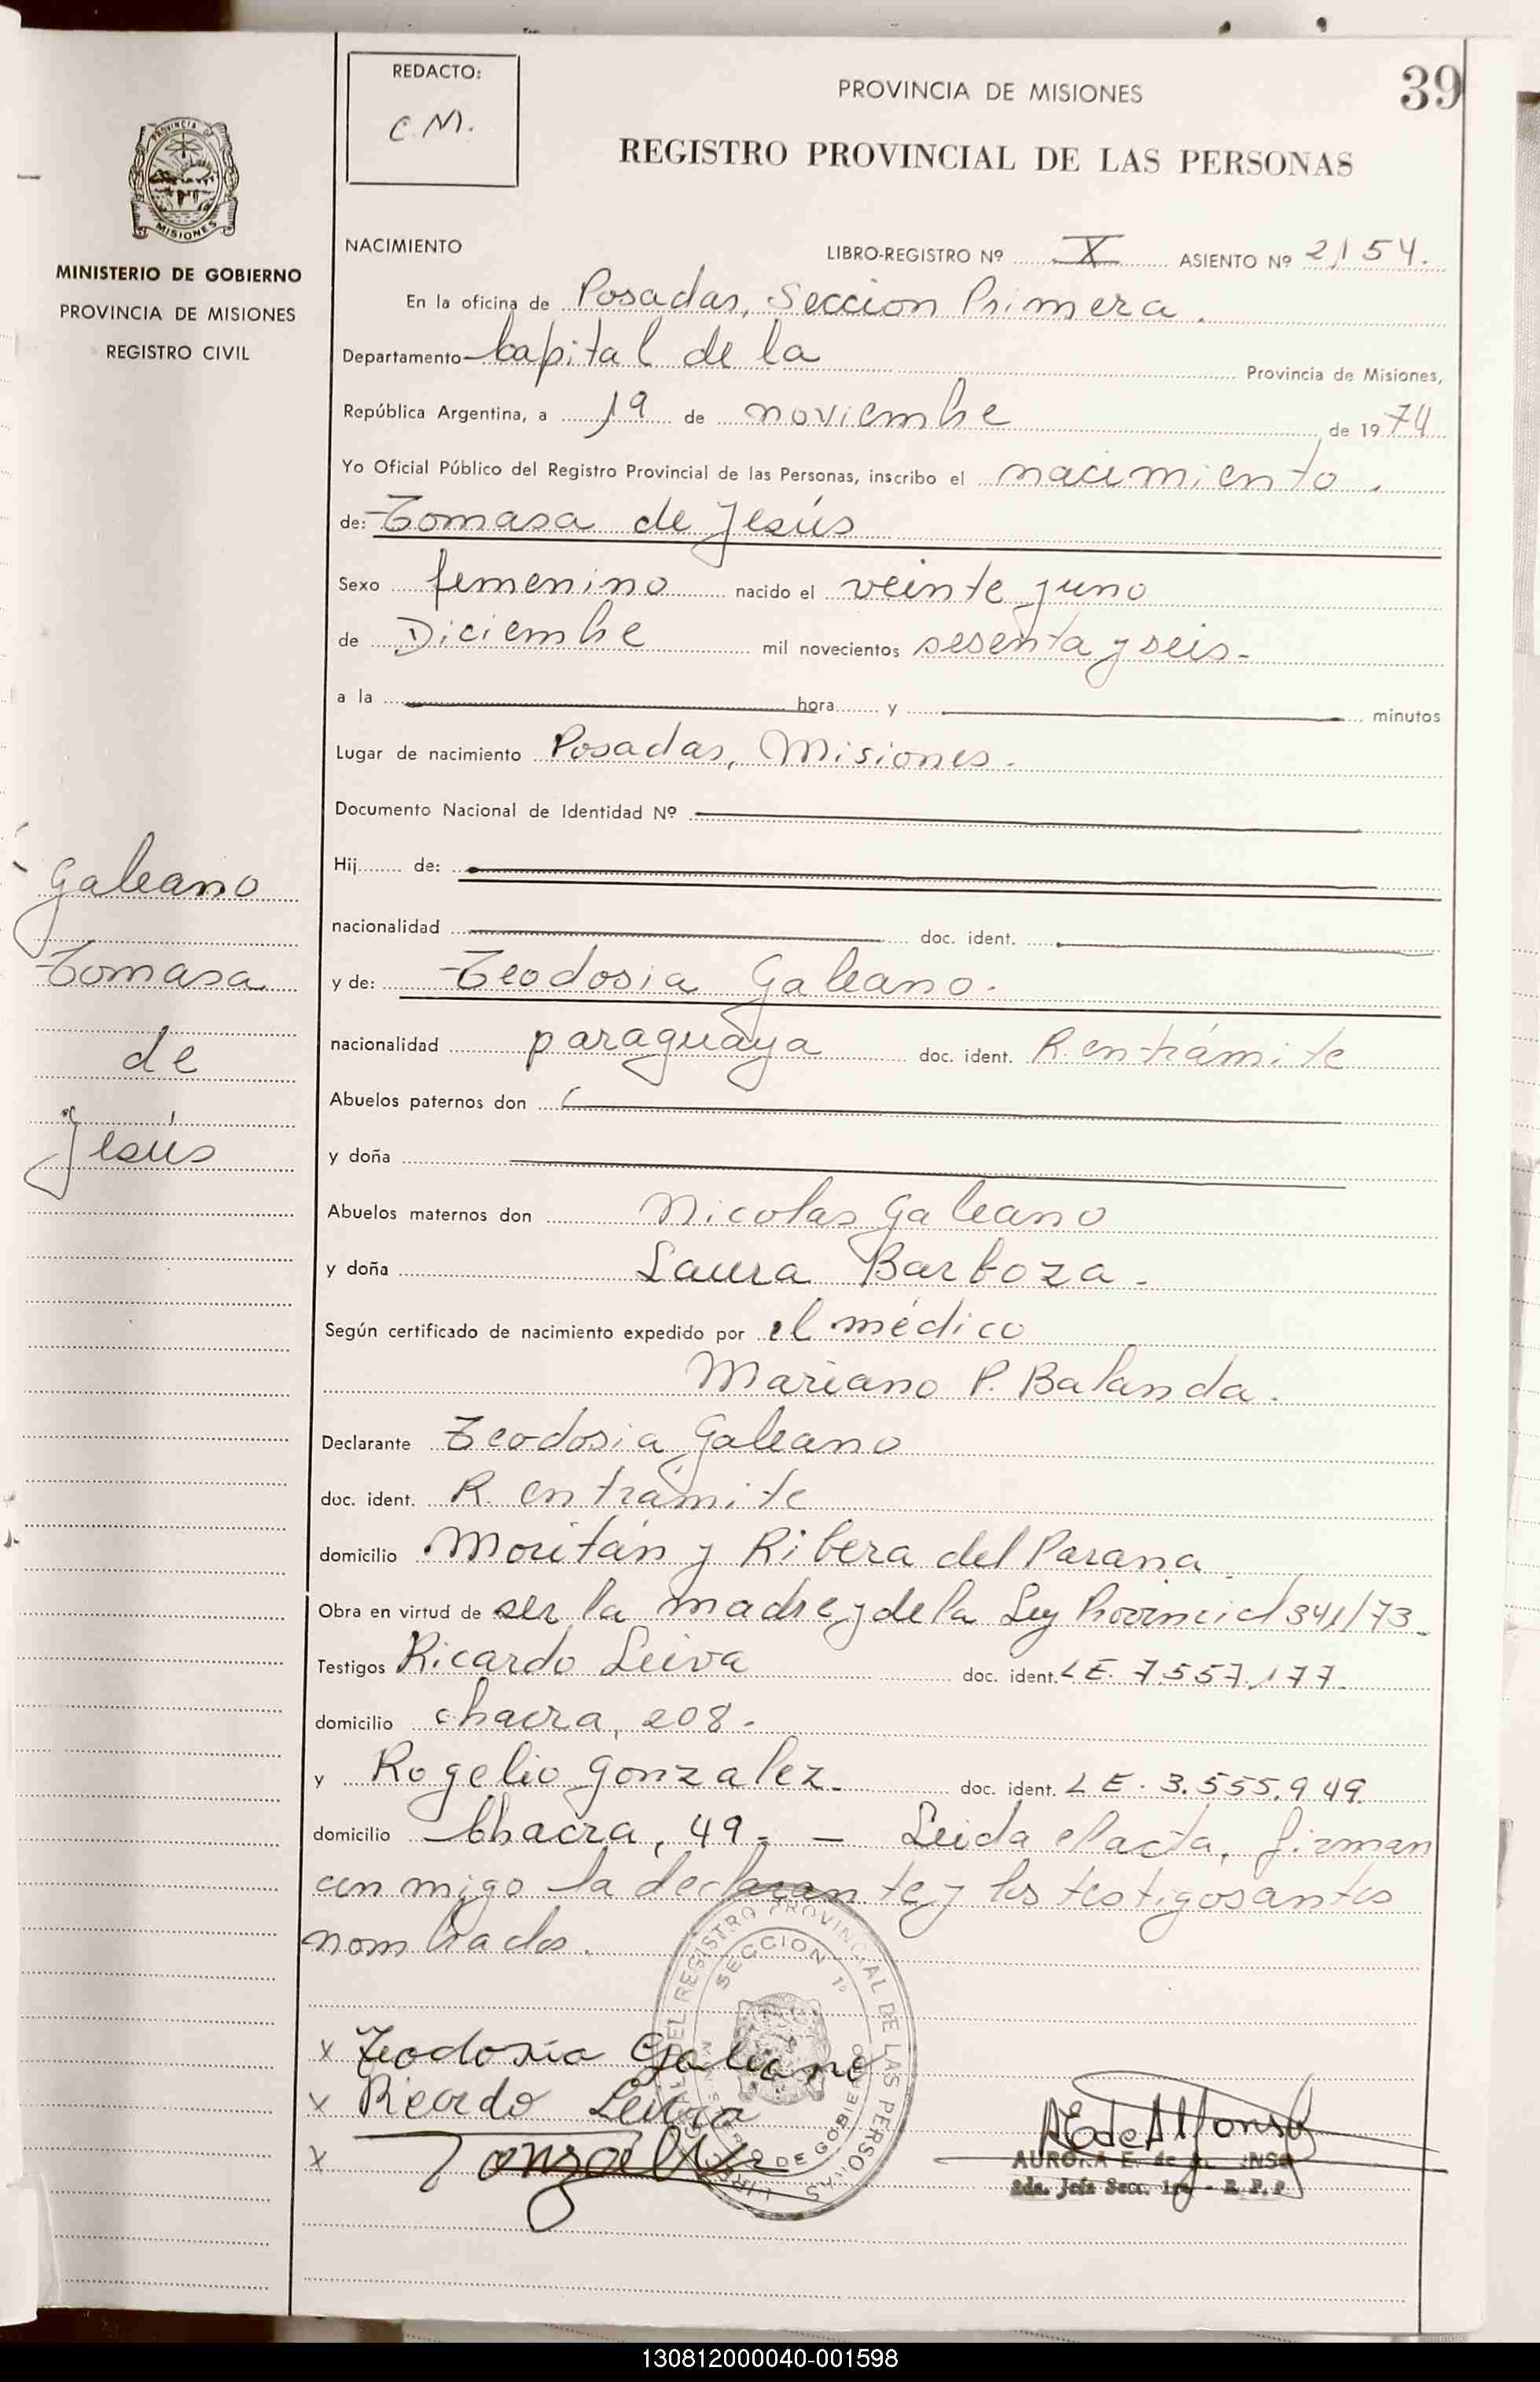 39
REDACTO:
C.M.
PROVINCIA DE MISIONES
REGISTRO PROVINCIAL DE LAS PERSONAS
PROVINCIA
MISIONES
MINISTERIO DE GOBIERNO
PROVINCIA DE MISIONES
REGISTRO CIVIL
Galeano
Tomasa
de
Jesús
NACIMIENTO LIBRO-REGISTRO Nº X ASIENTO Nº 2154.
En la oficina de Posadas, Seccion Primera.
Departamento Capital de la Provincia de Misiones,
República Argentina, a 19 de noviembre de 1974
Yo Oficial Público del Registro Provincial de las Personas, inscribo el nacimiento.
de: Tomasa de Jesús
Sexo femenino nacido el veinte y uno
de Diciembre mil novecientos sesenta y seis-
a la hora y minutos
Lugar de nacimiento Posadas, Misiones.
Documento Nacional de Identidad Nº
Hij de:
nacionalidad doc. ident.
y de: Teodosia Galeano.
nacionalidad paraguaya doc. ident. R. en trámite
Abuelos paternos don
y doña
Abuelos maternos don Nicolas Galeano
y doña Laura Barboza.
Según certificado de nacimiento expedido por el médico
Mariano P. Balanda.
Declarante Teodosia Galeano
doc. ident. R. en trámite
domicilio Moritán y Ribera del Parana
Obra en virtud de ser la madre y de la Ley Provincial 341/73-
Testigos Ricardo Leiva doc. ident. LE. 7.557.177-
domicilio chacra, 208.-
y Rogelio Gonzalez- doc. ident. LE. 3.555.949.
domicilio Chacra, 49- - Leida el acta, firman
conmigo la declarante y los testigos antes
nombrados.
DEL REGISTRO PROVINCIAL DE LAS PERSONAS
SECCION 1º
DE GOBIERNO
x Teodosia Galeano
x Ricardo Leiva
x Gonzalez
AEdeAlfonso
AURORA E. de
2da. Jefa Secc. 1ra - R. P. P.
130812000040-001598